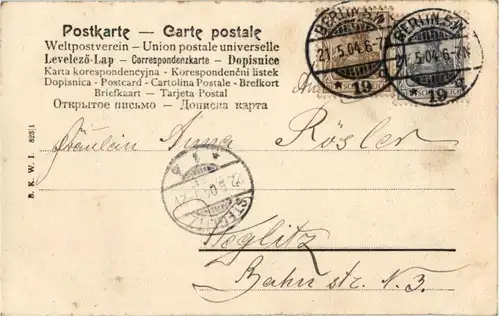 Postkarte — Carte postale
Weltpostverein - Union postale universelle
Levelező-Lap — Correspondenzkarte — Dopisnice
Karta korespondencyjna - Korespondenční listek
Dopisnica - Postcard - Cartolina Postale - Brefkort
Briefkaart — Tarjeta Postal
Открытое письмо — Дописна карта
BERLIN S.W.
21.5.04.6-7N.
* 19 d
BERLIN S.W.
21.5.04.6-7N.
* 19 d
Fräulein Anna Rösler
STEGLITZ
22.5.04
Steglitz
Bahn str. N. 3.
B. K. W. I. 828/1